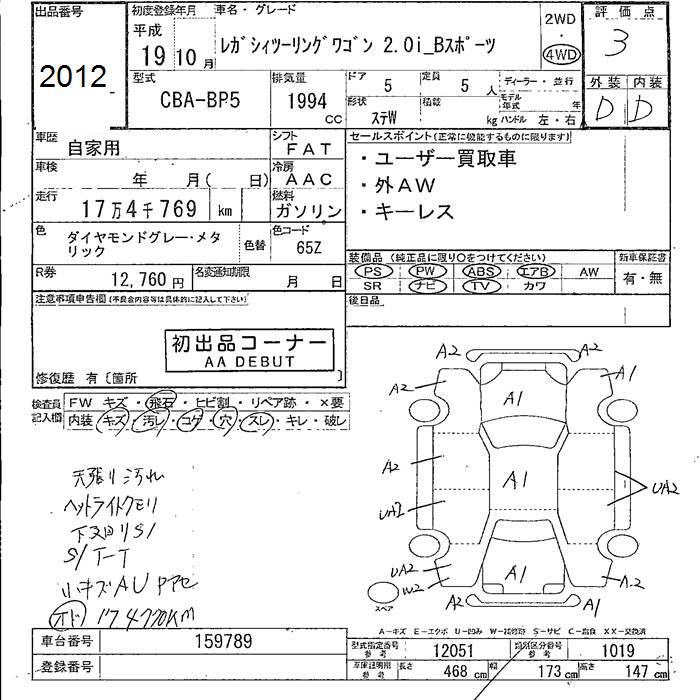 出品番号 初度登録年月 車名・グレード 2WD 評価点
平成 ・ 3
2012 19 10月 レガシィツーリングワゴン 2.0i_Bスポーツ 4WD
型式 排気量 ドア 5 定員 5人 ディーラー・並行 外装 内装
CBA-BP5 1994 CC 形状 ステW 積載 kg モデル年式 年 D D
ハンドル 左・右
車歴 自家用 シフト FAT セールスポイント(正常に機能するものに限ります)
車検 年 月( 日) 冷房 AAC ・ユーザー買取車
・外AW
走行 17万4千769 km 燃料 ガソリン ・キーレス
色 ダイヤモンドグレー・メタリック 色替 色コード 65Z
装備品(純正品に限り○をつけてください) 新車保証書
R券 12,760円 名変通知期限 月 日 PS PW ABS エアB AW 有・無
SR ナビ TV カワ
注意事項申告欄(不良金内容等は具体的に記入して下さい) 後日品
初出品コーナー
AA DEBUT
修復歴 有〔箇所 〕
検査員 FW キズ・飛石・ヒビ割・リペア跡・×要
記入欄 内装 キズ・汚レ・コゲ・穴・スレ・キレ・破レ
A2 A2
A2 A1 A1
A2 A1 UA2
UA2
UA2 A1 A2
W2
スペア A2 A1
天張り汚れ
ヘットライトクモリ
下又回りS1
小キズAU
オド 174770KM
A-キズ E-エクボ U-凹み W-補修跡 S-サビ C-腐食 XX-交換済
車台番号 159789 型式指定番号 参考 12051 類別区分番号 参考 1019
登録番号 車庫証明用 参考 長さ 468 cm 幅 173 cm 高さ 147 cm